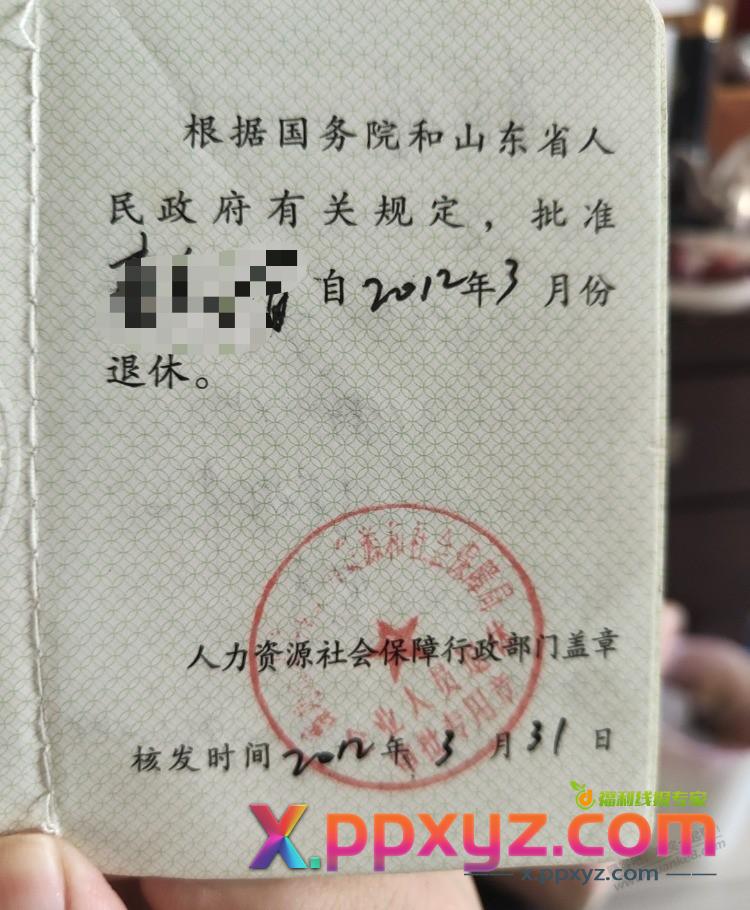 根据国务院和山东省人
民政府有关规定，批准
自2012年3月份
退休。
资源和社会保障局
人力资源社会保障行政部门盖章
业人员退休
审批专用章
核发时间2012年3月31日
福利线报专家
X.ppxyz.com
x.ppxyz.com